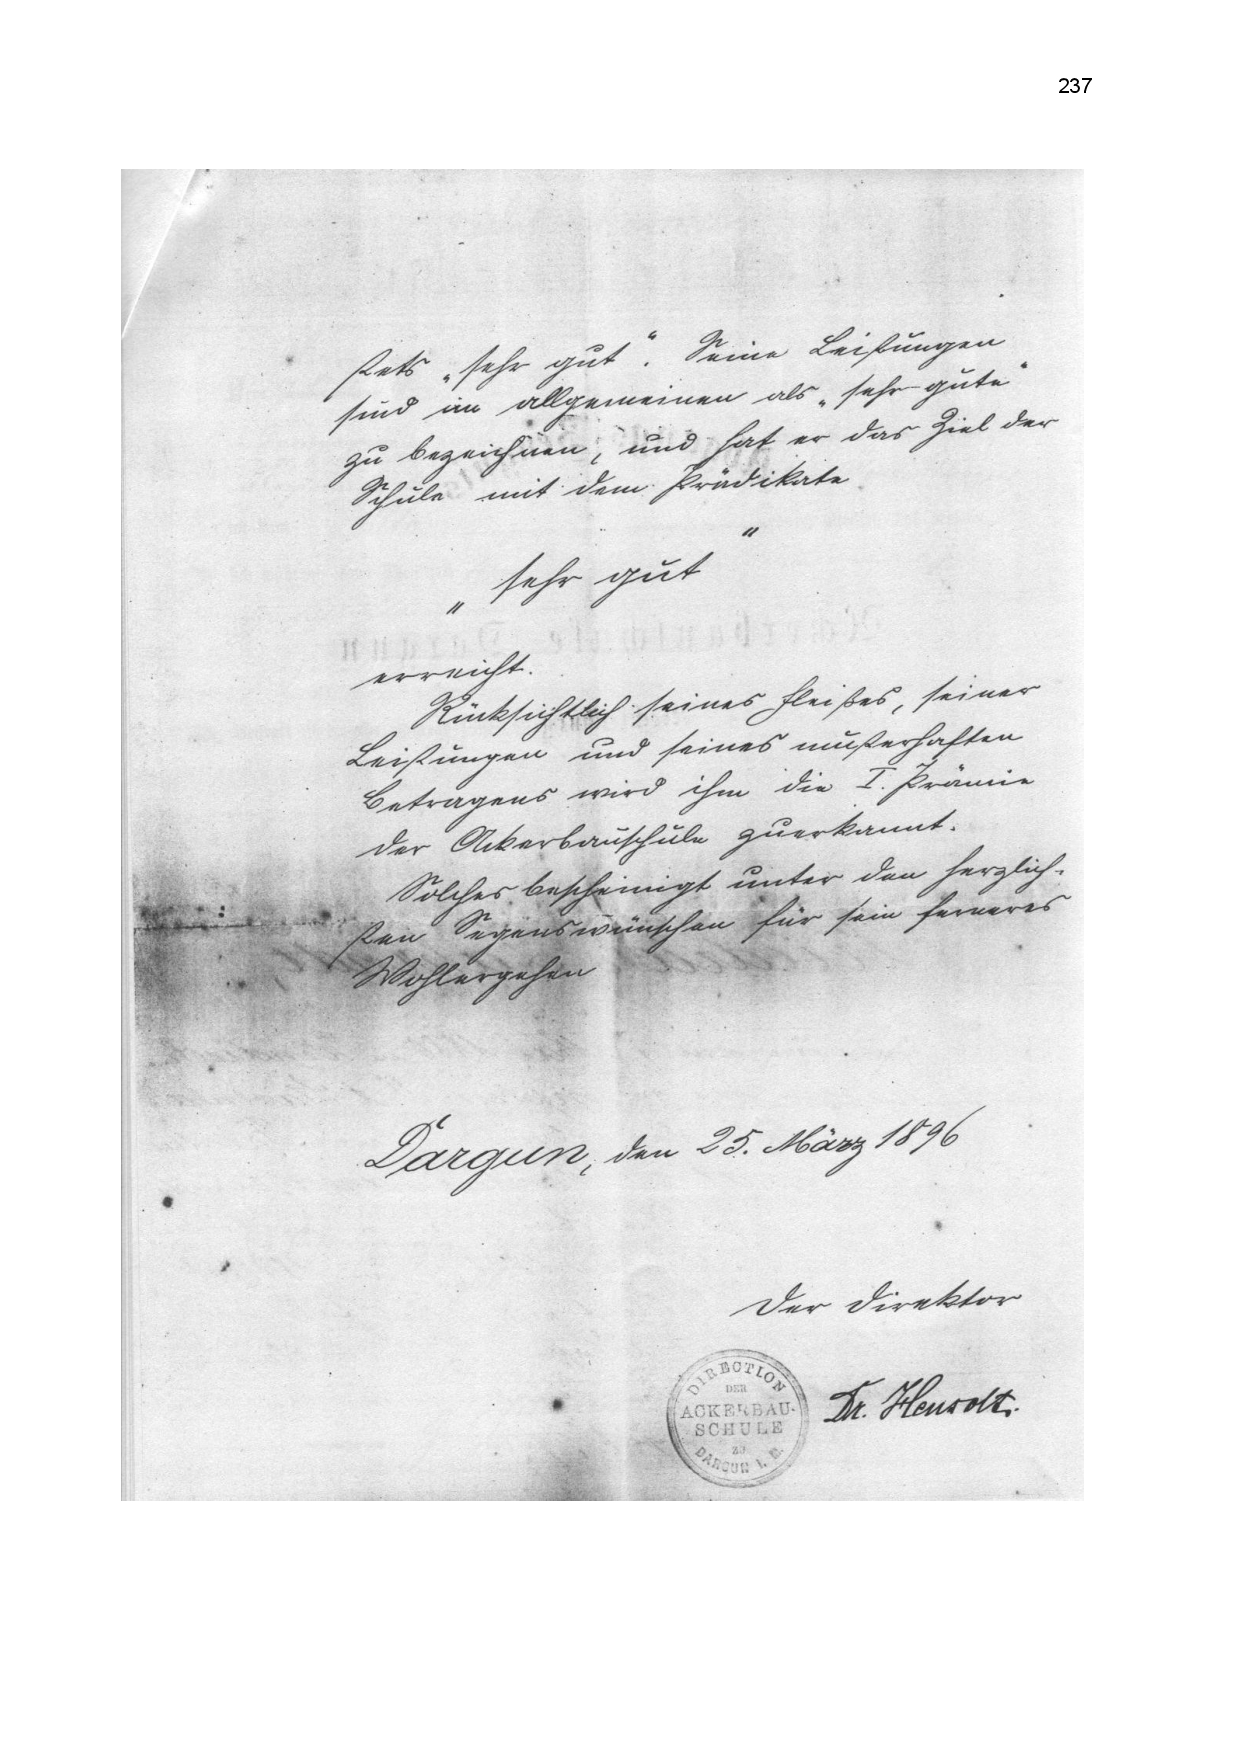 237
stets „sehr gut“. Seine Leistungen
sind im allgemeinen als „sehr gute“
zu bezeichnen, und hat er das Ziel der
Schule mit dem Prädikate
„sehr gut“
erreicht.
Rücksichtlich seines Fleißes, seiner
Leistungen und seines musterhaften
Betragens wird ihm die I. Prämie
der Ackerbauschule zuerkannt.
Solches bescheinigt unter den herzlich-
sten Segenswünschen für sein ferneres
Wohlergehen
Dargun, den 25. März 1896
Der Direktor
Dr. Henrolt.
DIRECTION
DER
ACKERBAU-
SCHULE
ZU
DARGUN I. M.